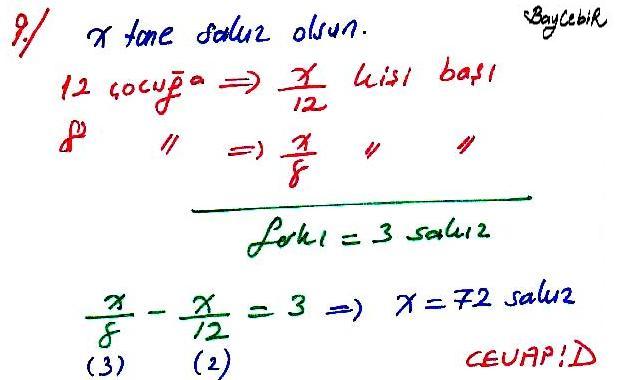 9./ x tane sakız olsun. BayCebiR
12 çocuğa ⇒ x/12 kişi başı
8 " ⇒ x/8 " "
farkı = 3 sakız
x/8 - x/12 = 3 ⇒ x = 72 sakız
(3) (2) CEVAP: D